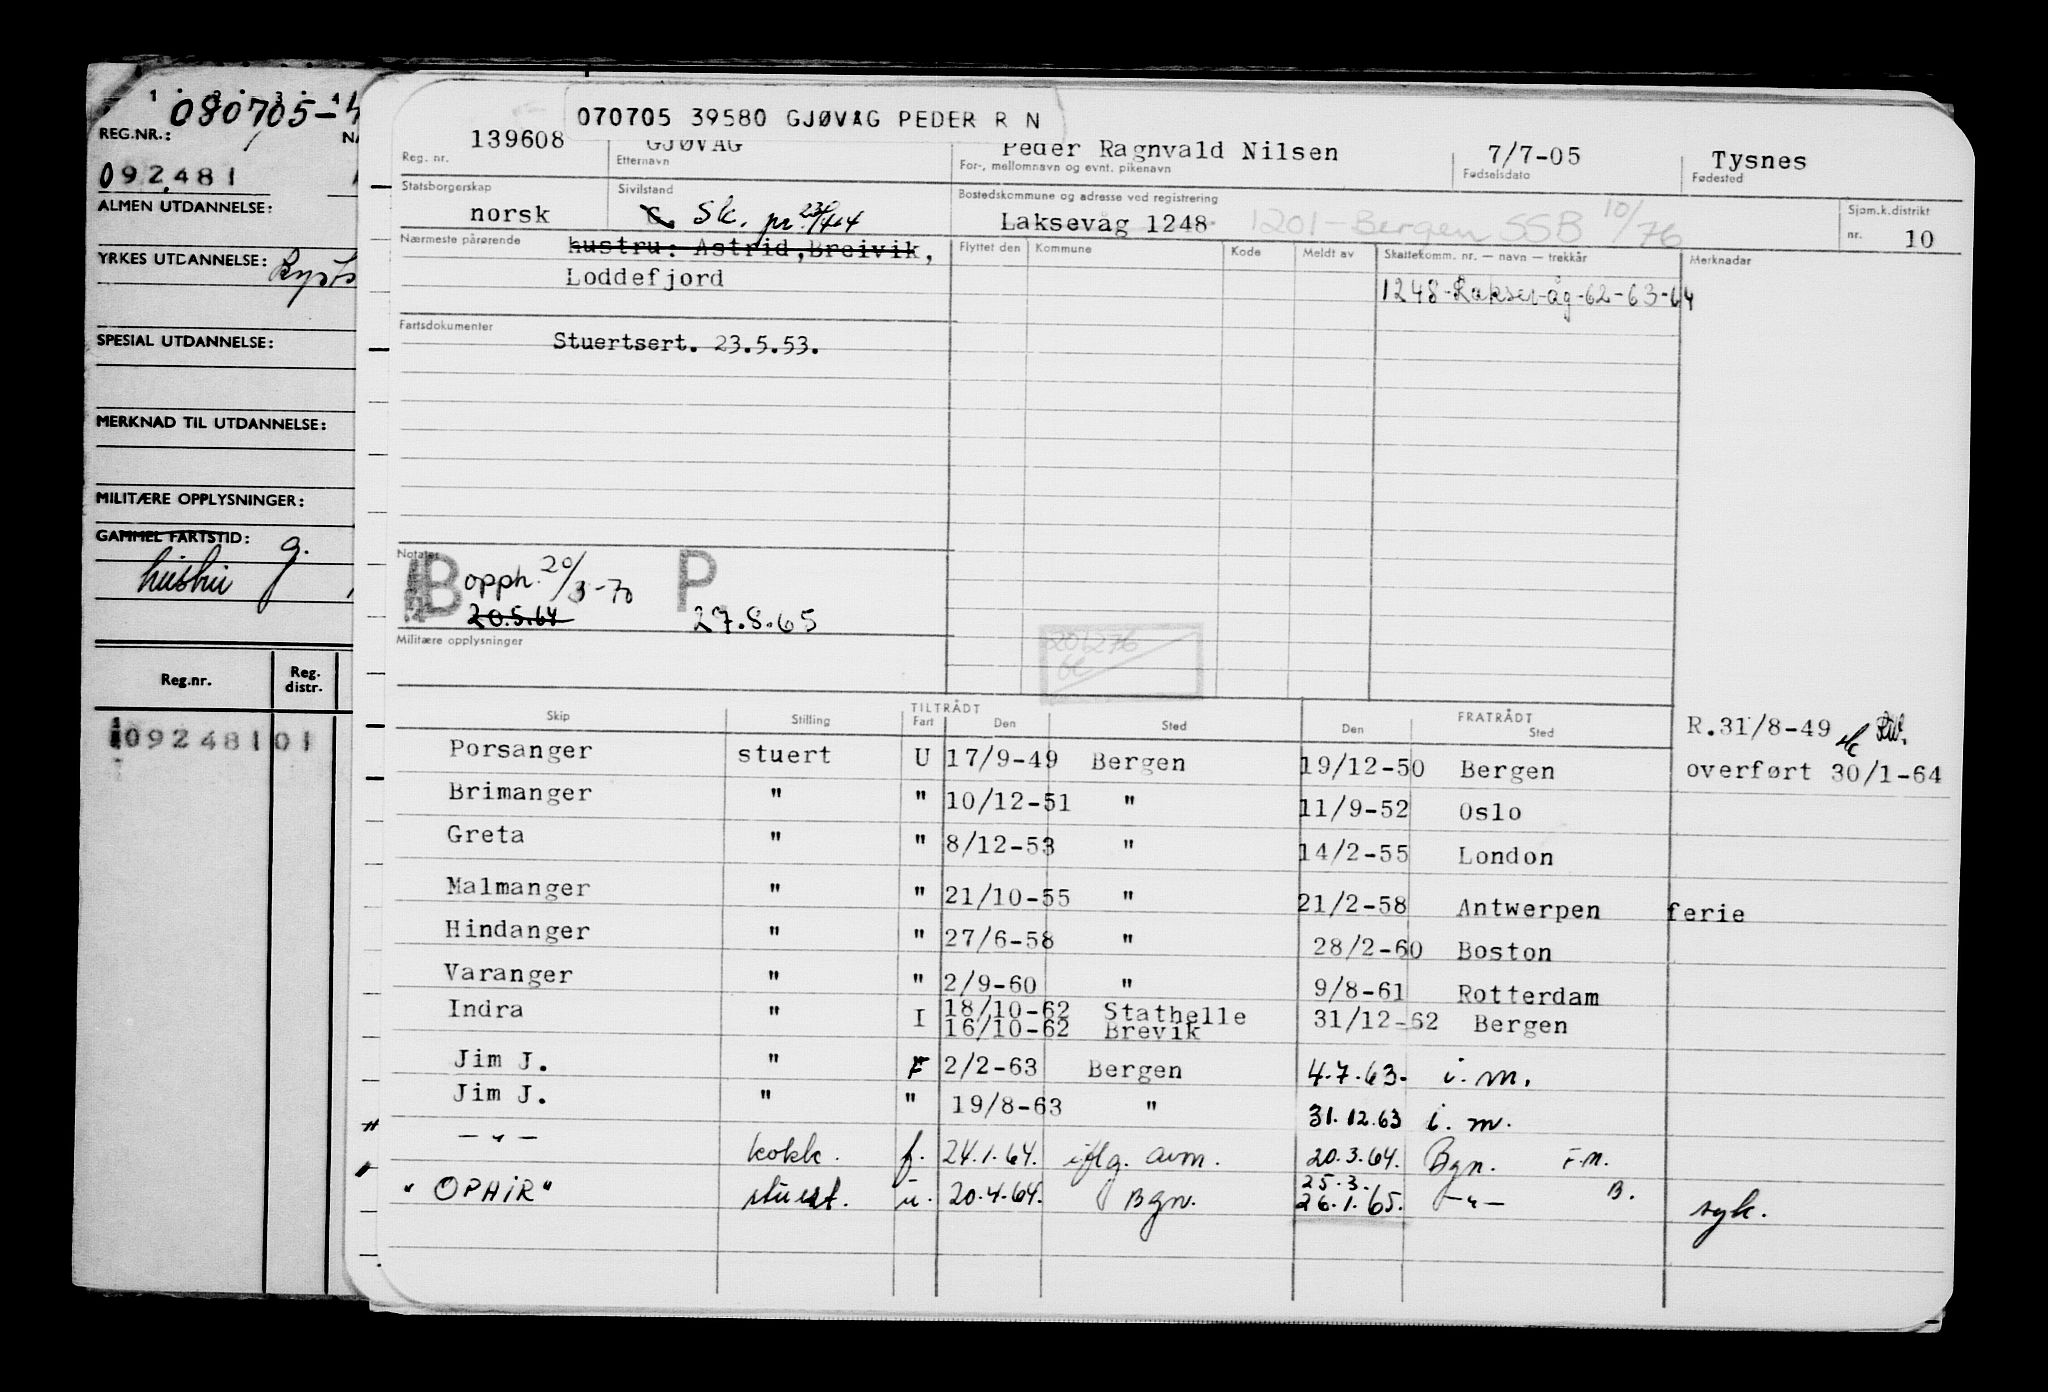 080705-
REG.NR.:
092481
ALMEN UTDANNELSE:
YRKES UTDANNELSE:
SPESIAL UTDANNELSE:
MERKNAD TIL UTDANNELSE:
MILITÆRE OPPLYSNINGER:
GAMMEL FARTSTID: g.
Reg.nr. Reg. distr.
109248101
070705 39580 GJØVÅG PEDER R N
139608 GJØVÅG Peder Ragnvald Nilsen 7/7-05 Tysnes
Reg. nr. Etternavn For-, mellomnavn og evnt. pikenavn Fødselsdato Fødested
Statsborgerskap Sivilstand Bostedskommune og adresse ved registrering Sjøm.k.distrikt
norsk G. Sk. pr. 23/-64 Laksevåg 1248 1201-Bergen SSB 10/76 nr. 10
Nærmeste pårørende hustru: Astrid, Breivik, Flyttet den Kommune Kode Meldt av Skattekomm. nr. — navn — trekkår Merknadar
Loddefjord 1248-Laksevåg-62-63-64
Fartsdokumenter
Stuertsert. 23.5.53.
Notater
B opph. 20/3-70 P
20.5.64 27.8.65
Militære opplysninger
201276
TILTRÅDT FRATRÅDT
Skip Stilling Fart Den Sted Den Sted R.31/8-49
Porsanger stuert U 17/9-49 Bergen 19/12-50 Bergen overført 30/1-64
Brimanger " " 10/12-51 " 11/9-52 Oslo
Greta " " 8/12-53 " 14/2-55 London
Malmanger " " 21/10-55 " 21/2-58 Antwerpen ferie
Hindanger " " 27/6-58 " 28/2-60 Boston
Varanger " " 2/9-60 " 9/8-61 Rotterdam
Indra " I 18/10-62 Stathelle 31/12-62 Bergen
16/10-62 Brevik
Jim J. " F 2/2-63 Bergen 4.7.63. i.m.
Jim J. " " 19/8-63 " 31.12.63 i.m.
— " — kokk. f. 24.1.64. iflg. avm. 20.3.64. Bgn. F.M.
25.3.
"OPHIR" stuert. u. 20.4.64. Bgn. 26.1.65. — " — B. syk.